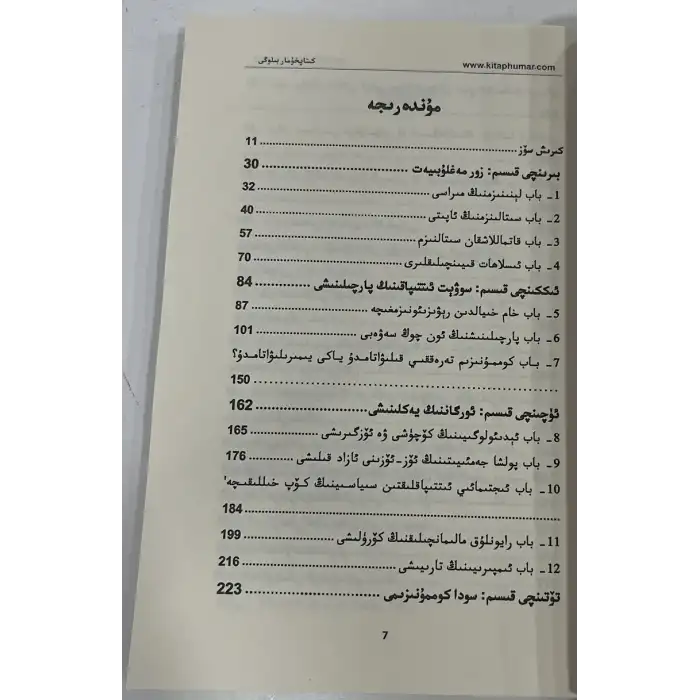 كىتاپخۇمار بىلوگى
www.kitaphumar.com
مۇندەرىجە
كىرىش سۆز ........ 11
بىرىنچى قىسىم: زور مەغلۇبىيەت ........ 30
1- باب لېنىنىزمنىڭ مىراسى ........ 32
2- باب سىتالىنىزمنىڭ ئاپىتى ........ 40
3- باب قاتماللاشقان سىتالنىزم ........ 57
4- باب ئىسلاھات قىيىنچىلىقلىرى ........ 70
ئىككىنچى قىسىم: سوۋېت ئىتتىپاقىنىڭ پارچىلىنىشى ........ 84
5- باب خام خىيالدىن رېۋىزىئونىزمغىچە ........ 87
6- باب پارچىلىنىشنىڭ ئون چوڭ سەۋەبى ........ 101
7- باب كوممۇنىزىم تەرەققىي قىلىۋاتامدۇ ياكى يىمىرىلىۋاتامدۇ؟
........ 150
ئۈچىنچى قىسىم: ئورگاننىڭ يەكلىنىشى ........ 162
8- باب ئىدىئولوگىيىنىڭ كۆچۈشى ۋە ئۆزگىرىشى ........ 165
9- باب پولشا جەمئىيىتىنىڭ ئۆز-ئۆزىنى ئازاد قىلىشى ........ 176
10- باب ئىجتىمائىي ئىتتىپاقلىقتىن سىياسىينىڭ كۆپ خىللىقىچە'
........ 184
11- باب رايونلۇق مالىمانچىلىقنىڭ كۆرۈلىشى ........ 199
12- باب ئىمپىرىيىنىڭ تارىيىشى ........ 216
تۆتىنچى قىسىم: سودا كوممۇنىزىمى ........ 223
7